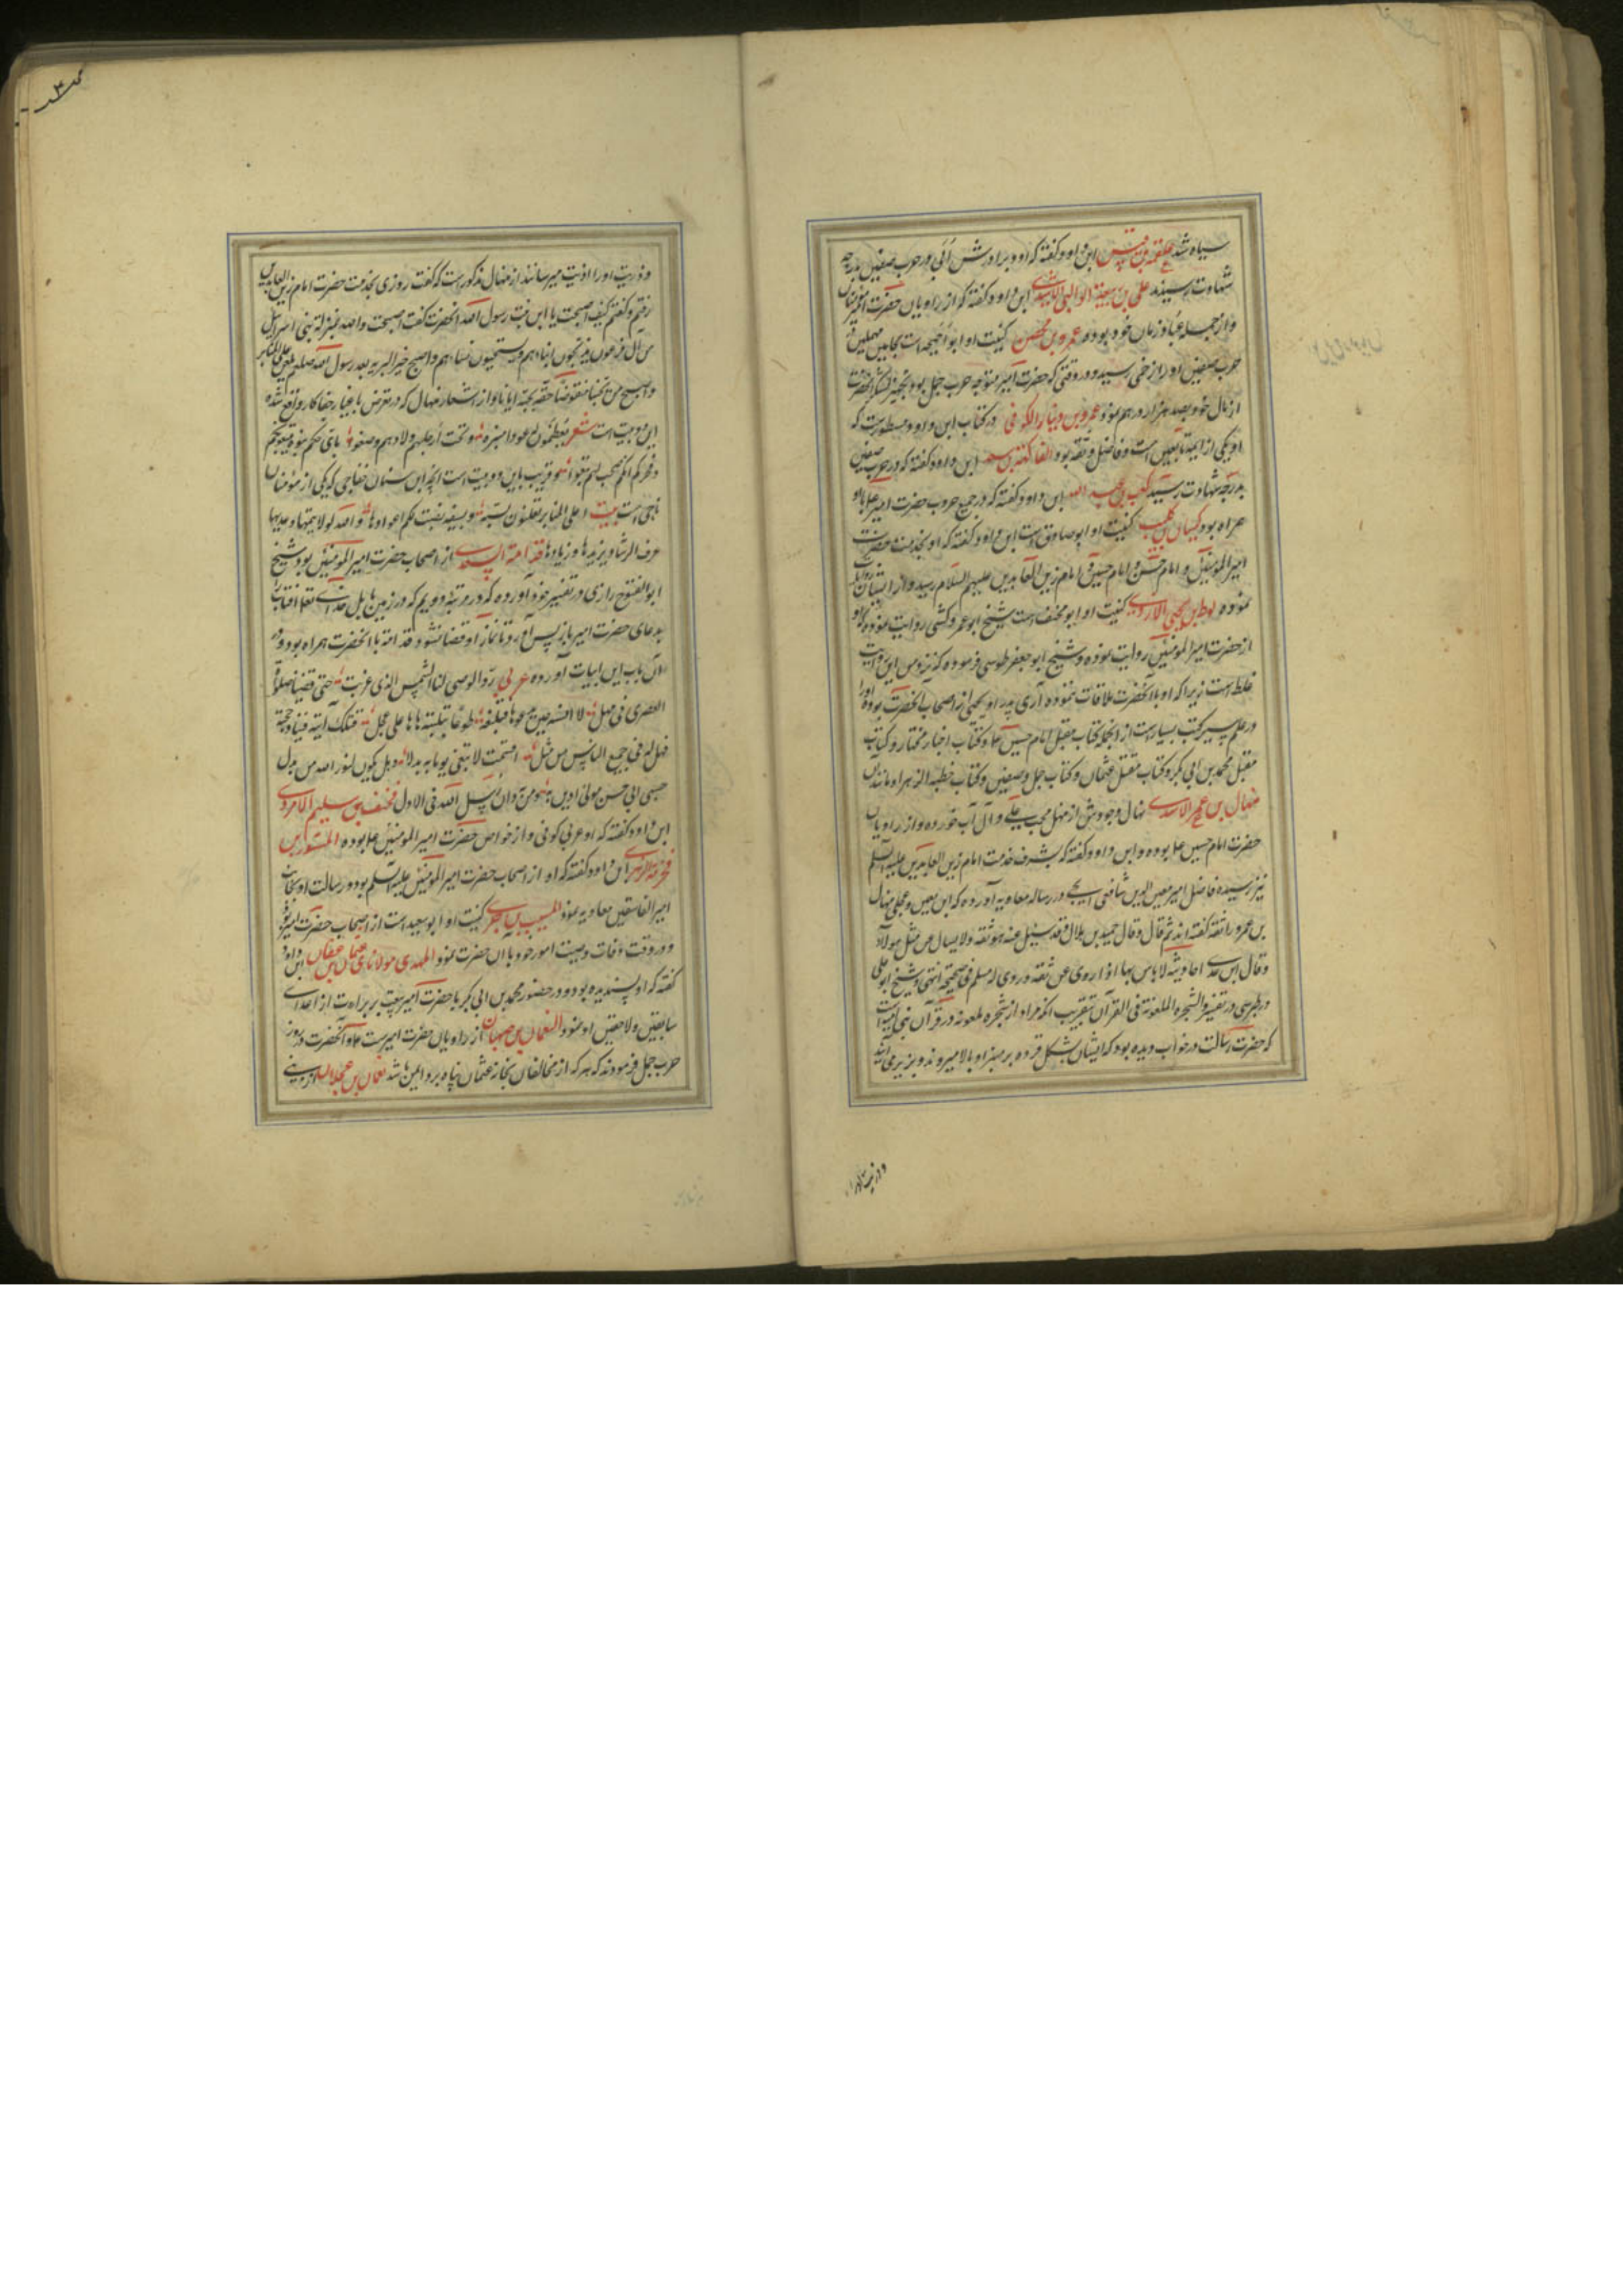 سیاه شد علقمة بن قیس ابن داود گفته که او و برادرش اُبَی در حرب صفین بدرجه
شهادت رسیدند علی بن ربیعة الوالبی الاسدی ابن داود گفته که از راویان حضرت امیر
و از جمله عبّاد زمان خود بوده عمرو بن محصن کنیت او ابو اُحَیحه است
حرب صفین او را زخمی رسید و در وقتی که حضرت امیر متوجه حرب جمل بود بتجهیز لشکر آنحضرت
از مال خود بصد هزار درهم نمود عمرو بن دینار الکوفی در کتاب ابن داود مسطور است که
او یکی از ائمه تابعین است و فاضل و ثقه بود ابن داود گفته که در حرب صفین
بدرجه شهادت رسید کعب بن عبد الله ابن داود گفته که در جمیع حروب حضرت امیر با او
همراه بود کیسان بن کلیب کنیت او ابو صادق است ابن داود گفته که او بخدمت حضرت
امیر المومنین و امام حسن و امام حسین و امام زین العابدین علیهم السلام رسید و از ایشان روایت
نموده لوط بن یحیی الازدی کنیت او ابو مخنف است شیخ ابو عمرو کشی روایت نموده که او
از حضرت امیر المومنین روایت نموده و شیخ ابو جعفر طوسی فرموده که نزد من این روایت
غلط است زیرا که او با آنحضرت ملاقات ننموده آری پدر او یحیی از اصحاب آنحضرت بوده و او را
در علم سیر کتب بسیار است از آنجمله کتاب مقتل امام حسین ع و کتاب اخبار مختار و کتاب
مقتل محمد بن ابی بکر و کتاب مقتل عثمان و کتاب جمل و صفین و کتاب خطبة الزهرا و مانند آن
منهال بن عمرو الاسدی نهال وجودش از منهل محبت علی و آل آب خورده و از راویان
حضرت امام حسین ع بوده و ابن داود گفته که بشرف خدمت امام زین العابدین علیه السلم
نیز رسیده فاضل امیر معین الدین شافعی ایجی در رساله معاویه آورده که ابن معین و عجلی منهال
بن عمرو را ثقه گفته اند ثم قال و قال حمید بن بلال و قد سئل عنه هو ثقه و لا یسال عن مثل هولاء
و قال ابن عدی احادیثه لا باس بها اذا روی عن ثقه و روی له مسلم فی صحیحه انتهی و شیخ ابو علی
طبرسی در تفسیر و الشجرة الملعونة فی القرآن بتقریب آنکه مراد از شجره ملعونه در قرآن بنی امیه است
که حضرت رسالت در خواب دیده بود که ایشان بشکل قرده بر منبر او بالا میروند و بزیر می آیند
و ذریت او را
و ذریت او را اذیت میرسانند از منهال مذکور است که گفت روزی بخدمت حضرت امام زین العابدین
رفتم و گفتم کیف اصبحت یا ابن بنت رسول الله آنحضرت گفت اصبحت و الله بمنزلة بنی اسرائیل
من آل فرعون یذبحون ابناءهم و یستحیون نساءهم و اصبح خیر البریه بعد رسول الله صلعم یلعن علی المنابر
و اصبح من یحبنا منقوصا حقه بحبه ایانا و از اشعار منهال که در تعرض باغیار جفاکار واقع شده
این دو بیت است شعر یعظمون له عود المنبره و تحت ارجلهم اولادهم وضعوا بای حکم بنوه یتبعونکم
و فخرکم انکم صحب لهم تبع و قریب باین دو بیت است آنچه ابن سنان خفاجی که یکی از مومنان
ناجی است بیت ا علی المنابر تعلنون بسبه و بسیفه نصبت لکم اعوادها و الله لولا تیمها و عدیها
عرف الرشاد یزیدها و زیادها قدامة السعدی از اصحاب حضرت امیر المومنین بود و شیخ
ابو الفتوح رازی در تفسیر خود آورده که در مرتبه دویم که در زمین بابل خدای تعالی آفتاب را
بدعای حضرت امیر باز پس آورد تا نماز او قضا نشود قدامه با آنحضرت همراه بود و در
آن باب این ابیات آورده عربی ردّ الوصی لنا الشمس الذی غربت حتی قضینا صلوة
العصر فی مهل لا انسه حین یدعوها فتبلغه طوعا بتلبیة هاها علی عجل فتلک آیته فینا و حجته
فهل له فی جمیع الناس من مثل اقسمت لا ابتغی یوما به بدلا و هل یکون لنور الله من بدل
حسبی ابی حسن مولی ادین به و من به دان رسل الله فی الاول مخنف بن سلیم الازدی
ابن داود گفته که او عربی کوفی و از خواص حضرت امیر المومنین ع بوده المسور بن
مخرمة الزهری ابن داود گفته که او از اصحاب حضرت امیر المومنین علیه السلم بود و رسالت او بجانب
امیر الفاسقین معاویه نمود المسیب بن حزن کنیت او ابو سعید است از اصحاب حضرت امیر بود
و در وقت وفات وصیت امور خود را بآن حضرت نمود المهدی مولای عثمان بن عفان ابن داود
گفته که او پسندیده بود و در حضور محمد بن ابی بکر با حضرت امیر بیعت بر براءت از اعدای
سابقین و لاحقین او نمود النعمان بن صهبان از راویان حضرت امیر است ع و آنحضرت در روز
حرب جمل فرمودند که هر که از مخالفان بخانه نعمان پناه برد ایمن باشد نعمان بن عجلان از بنی